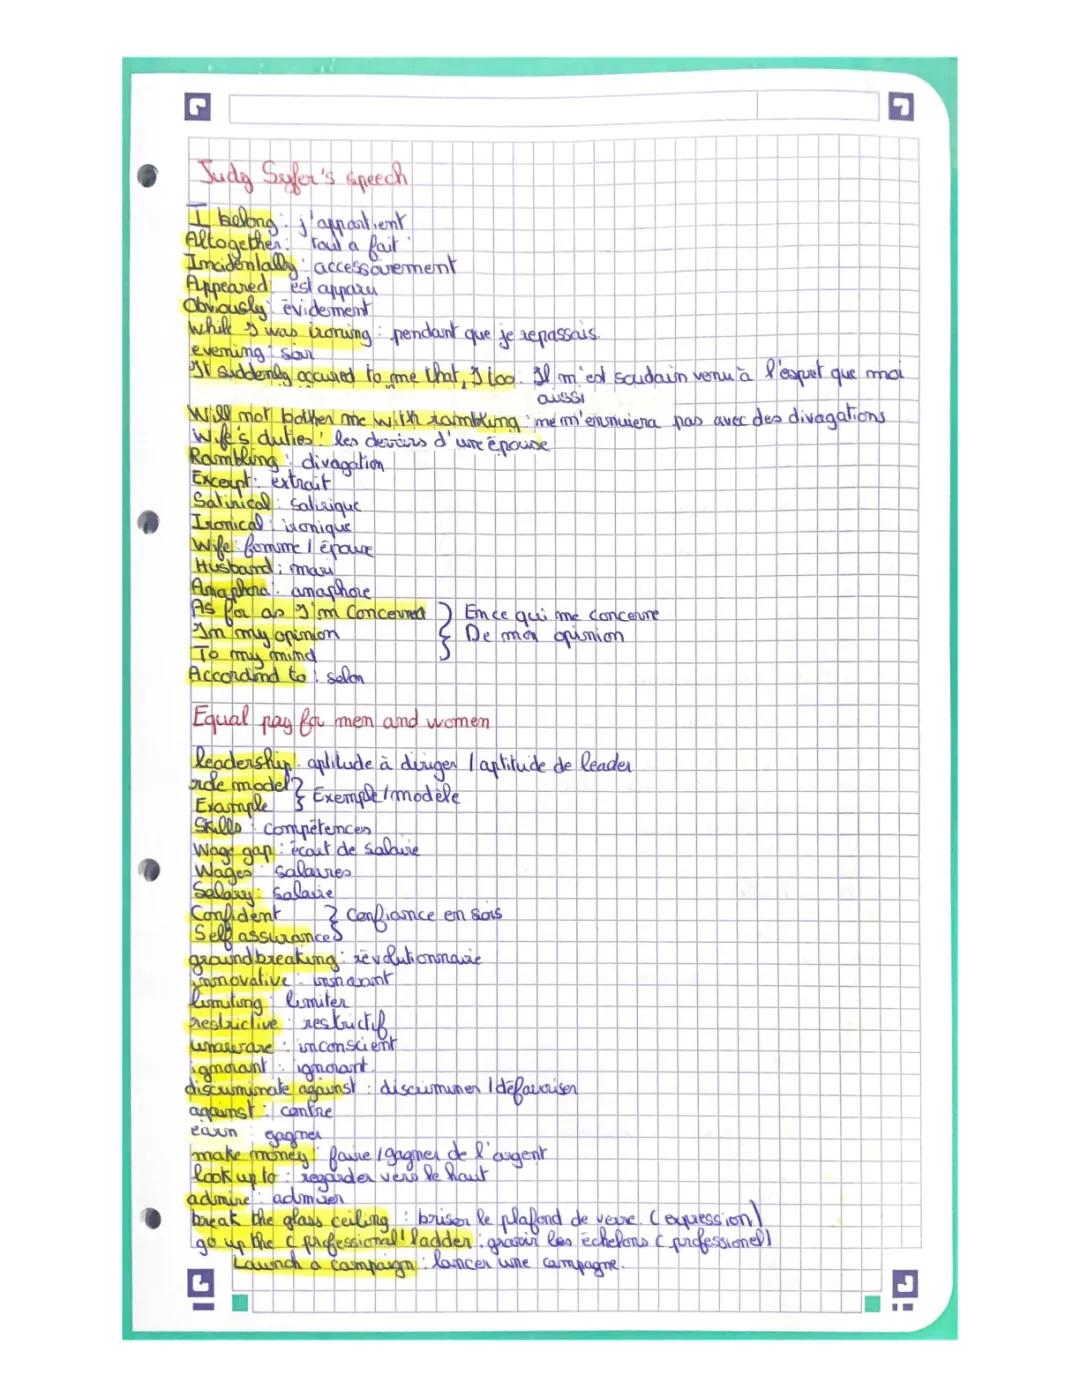 Judy Syfer's speech
I belong : j'appartient
Altogether : tout a fait
Incidentally : accessoirement
Appeared : est apparu
Obviously : évidement
While I was ironing : pendant que je repassais.
evening : soir
It suddenly occured to me that, I too : Il m'est soudain venu à l'esprit que moi
aussi
Will not bother me with rambling : ne m'ennuiera pas avec des divagations
Wife's duties : les devoirs d'une épouse
Rambling : divagation
Excerpt : extrait
Satirical : satirique
Ironical : ironique
Wife : femme / épouse
Husband : mari
Anaphora : anaphore
As far as I'm Concerned } En ce qui me concerne
In my opinion } De mon opinion
To my mind
Accordind to : selon
Equal pay for men and women
leadership : aptitude à diriger / aptitude de leader
role model } Exemple / modèle
Example
Skills : compétences
Wage gap : écart de salaire
Wages : salaires
Salary : salaire
Confident } Confiance en sois
Self assurance
groundbreaking : révolutionnaire
innovative : innovant
limiting : limiter
restrictive : restrictif
unaware : inconscient
ignorant : ignorant
discriminate against : discriminer / défavoriser
against : contre
earn : gagner
make money : faire / gagner de l'argent
look up to : regarder vers le haut
admire : admirer
break the glass ceiling : briser le plafond de verre (expression)
go up the (professional) ladder : gravir les échelons (professionel)
Launch a campaign : lancer une campagne.